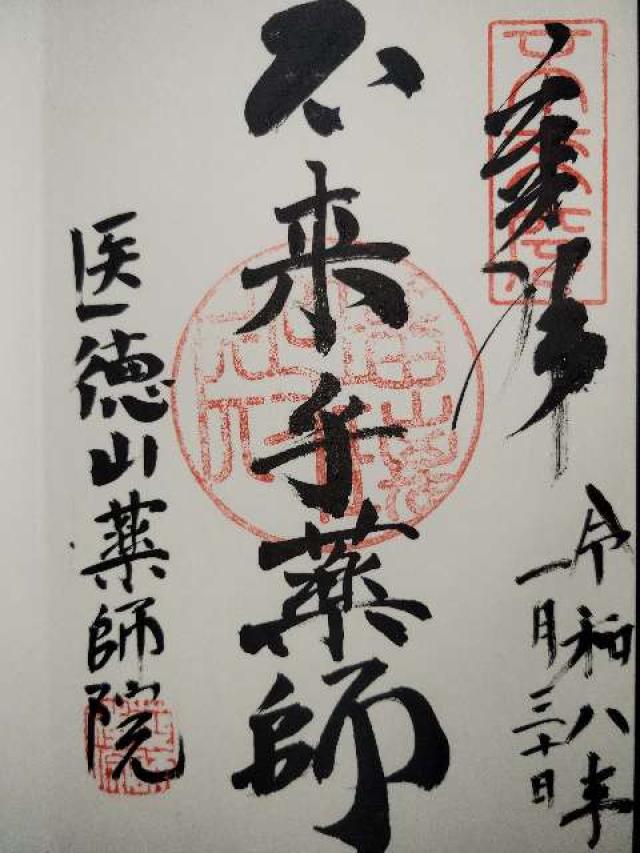 奉拝
令和八年
一月三十日
不来乎薬師
医徳山薬師院